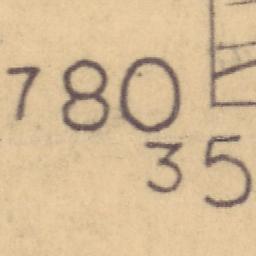 780
35